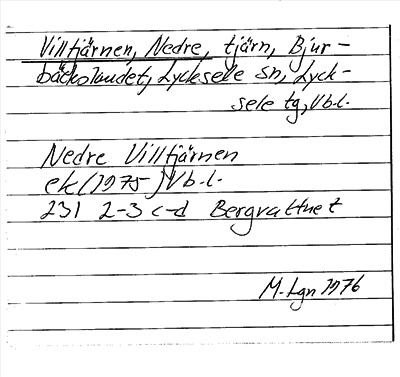 Villtjärnen, Nedre, tjärn, Bjur-
bäckslandet, Lycksele sn, Lyck-
sele tg, Vb.l.
Nedre Villtjärnen
ek (1975) Vb.l.
231 2-3 c-d Bergvattnet
M. Lgn 1976